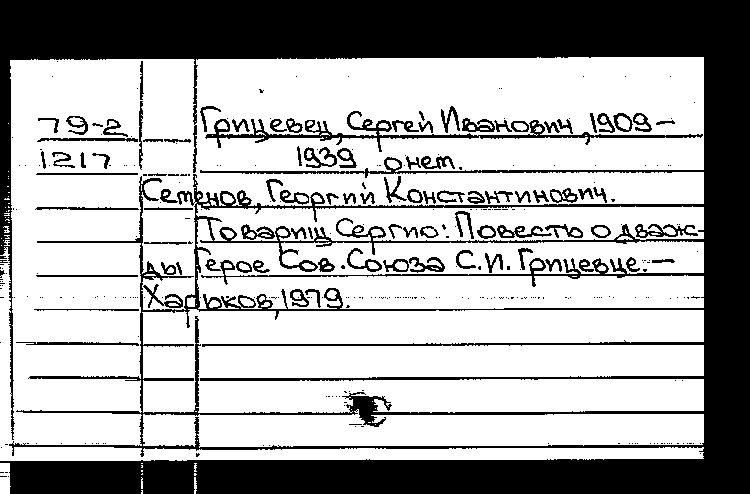 79-2 Грицевец, Сергей Иванович, 1909-
1217 1939, о нем.
Семенов, Георгий Константинович.
Товарищ Сергио: Повесть о дваж-
ды Герое Сов. Союза С.И. Грицевце. —
Харьков, 1979.